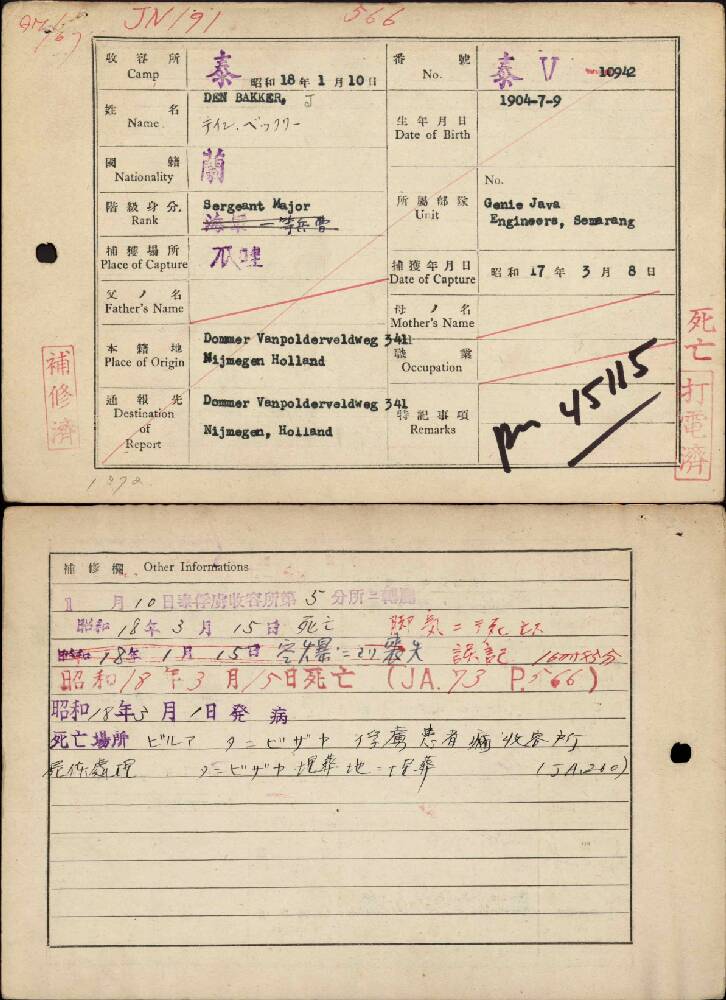 JN191
566
收容所 Camp 泰 昭和18年1月10日
番號 No. 泰 V 10942
姓名 Name DEN BAKKER, J
デン.ベッカー
生年月日 Date of Birth 1904-7-9
國籍 Nationality 蘭
階級身分 Rank Sergeant Major
一等兵曹
所屬部隊 Unit No. Genie Java
Engineers, Semarang
捕獲場所 Place of Capture 爪哇
捕獲年月日 Date of Capture 昭和17年3月8日
父ノ名 Father's Name
母ノ名 Mother's Name
本籍地 Place of Origin Dommer Vanpolderveldweg 341
Nijmegen Holland
職業 Occupation
通報先 Destination of Report Dommer Vanpolderveldweg 341
Nijmegen, Holland
特記事項 Remarks
45115
補修濟
死亡
打電濟
1372
補修欄 Other Informations
1月10日泰俘虜收容所第5分所ニ轉屬
昭和18年3月15日 死亡 脚氣ニ
昭和18年1月15日 空爆ニヨリ喪失 誤記
昭和18年3月15日死亡 (JA.73 P.566)
昭和18年3月1日発病
死亡場所 ビルマ タニビザヤ 俘虜患者 收容所
屍体處理 タニビザヤ埋葬地ニ埋葬 (JA.210)